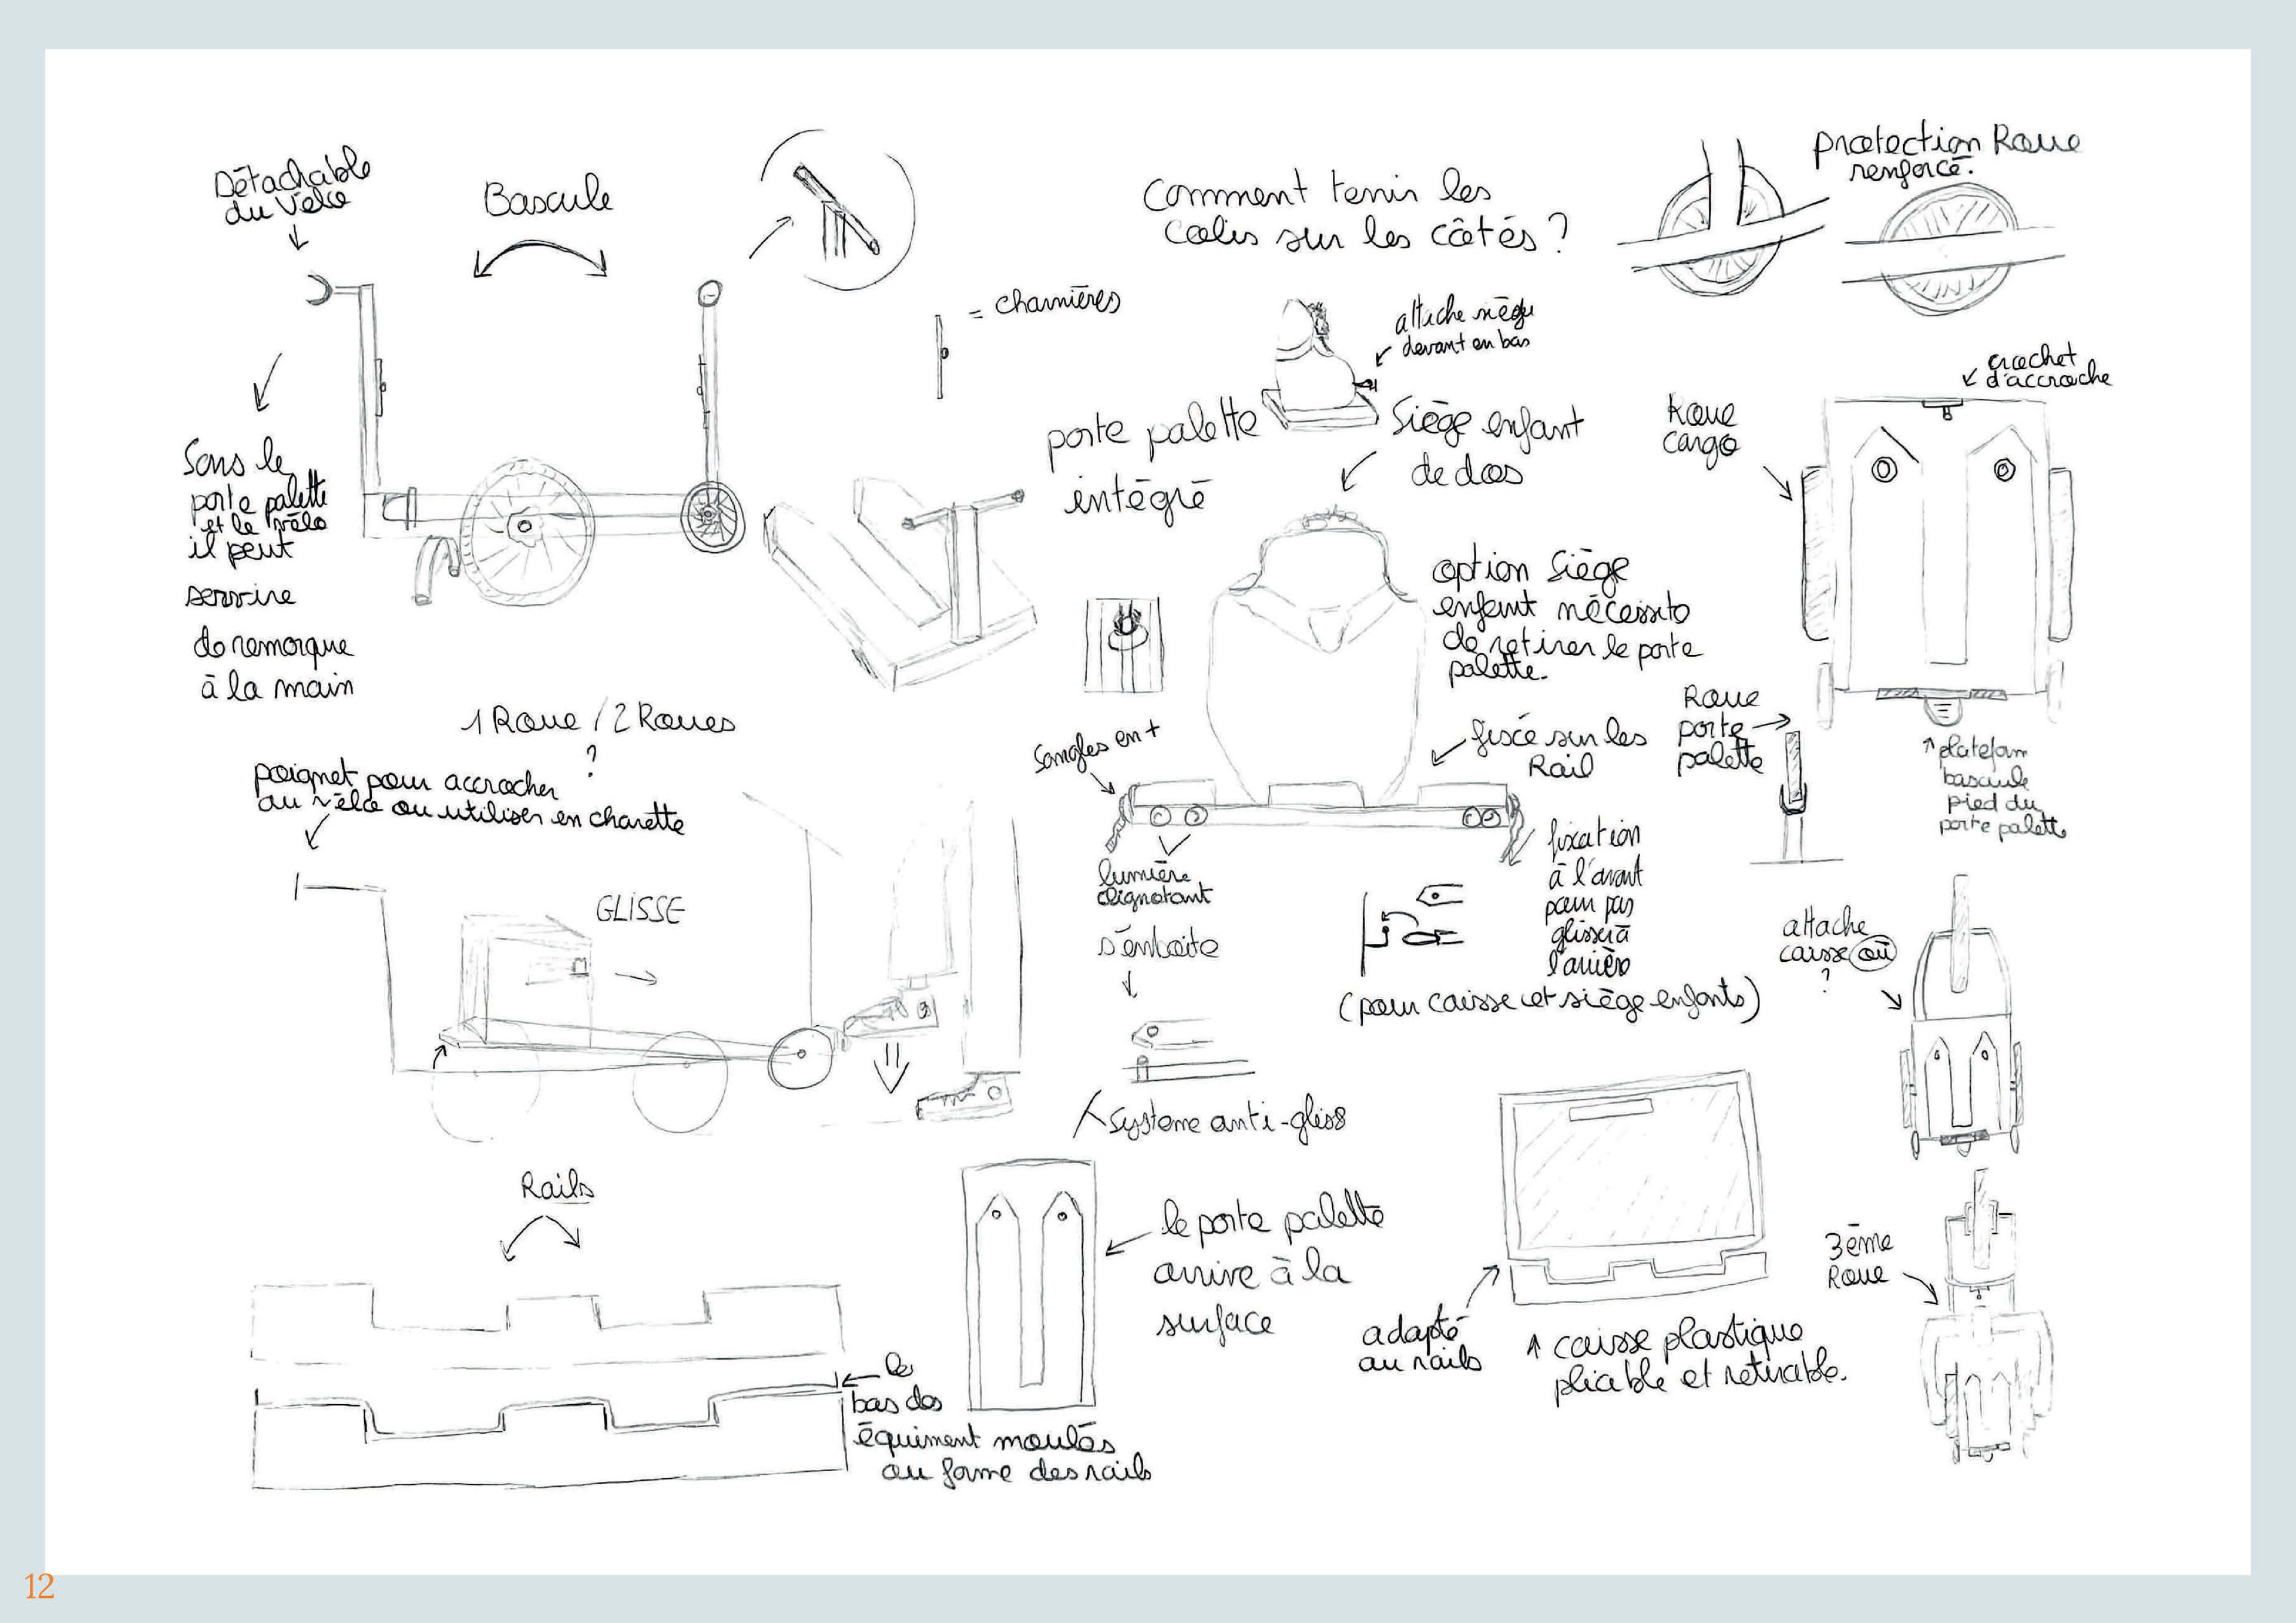 Détachable
du vélo
Bascule
= charnières
Sans le
porte palette
et le vélo
il peut
servire
de remorque
à la main
Comment tenir les
colis sur les côtés ?
attache siège
devant en bas
porte palette
intégré
Siège enfant
de dos
option siège
enfant nécessite
de retirer le porte
palette.
Protection Roue
renforcé.
crochet
d'accroche
Roue
cargo
Roue
porte
palette
platform
bascule
pied du
porte palette
1 Roue / 2 Roues
?
poignet pour accrocher
au vélo ou utiliser en charette
GLISSE
Sangles en +
fixée sur les
Rail
lumière
clignotant
s'emboite
fixation
à l'avant
pour pas
glisser à
l'arrière
(pour caisse et siège enfants)
système anti-gliss
attache
caisse où
?
Rails
le
bas des
équiment moulés
au forme des rails
le porte palette
arrive à la
surface
adapté
au rails
caisse plastique
pliable et retirable.
3ème
Roue
12